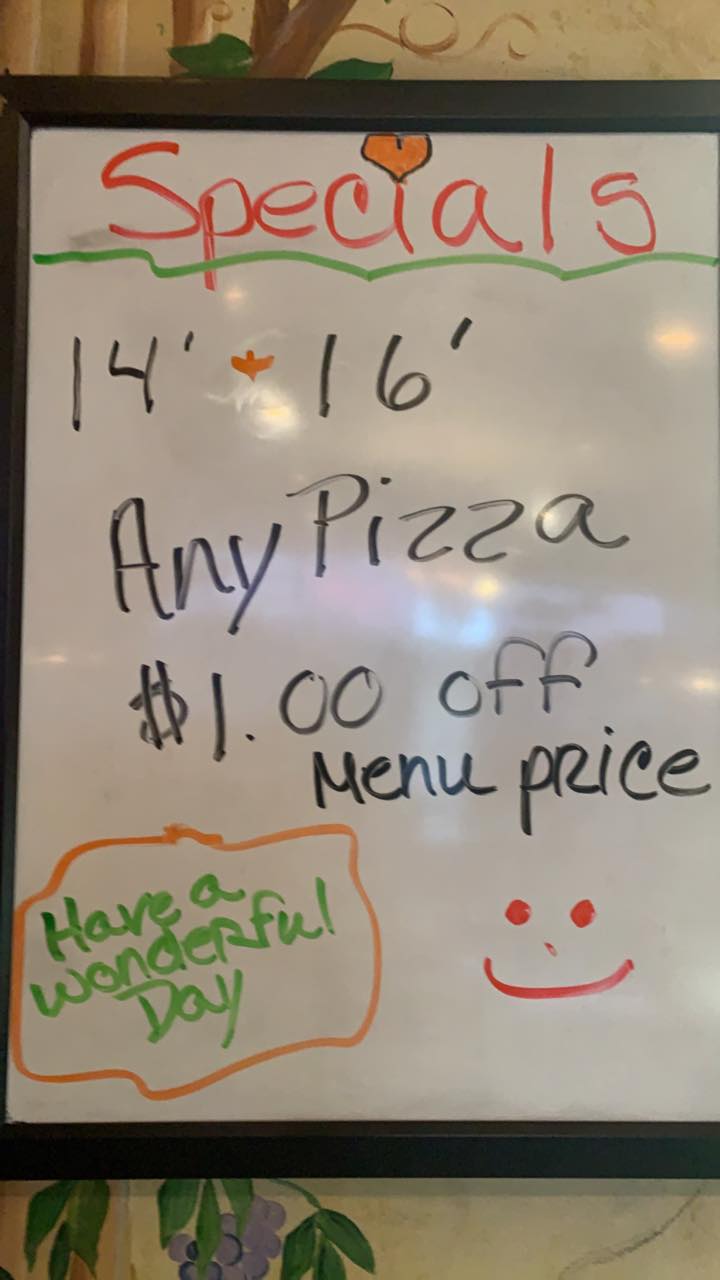 Specials
14' 16'
Any Pizza
$1.00 off
Menu price
Have a
wonderful
Day